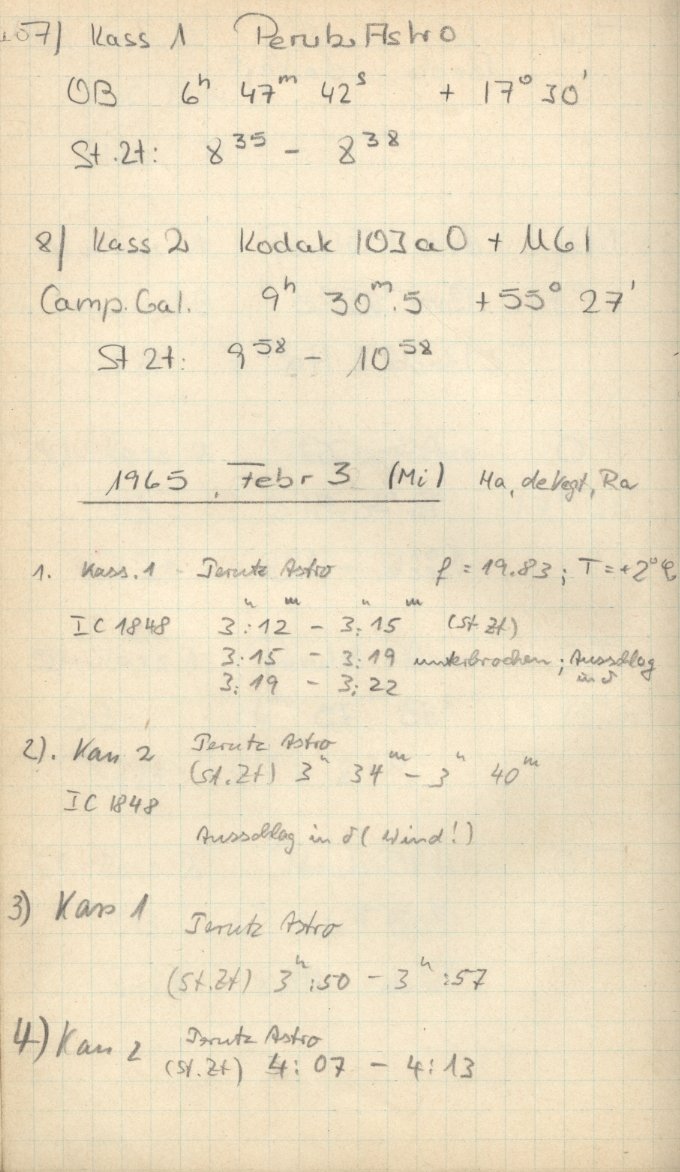 7) Kass 1 Perutz Astro
OB 6h 47m 42s + 17° 30'
St.Zt: 8 35 - 8 38
8) Kass 2 Kodak 103aO + UG1
Camp. Gal. 9h 30m.5 +55° 27'
St Zt: 9 58 - 10 58
1965, Febr 3 (Mi) Ha, de Vegt, Ra
1. Kass. 1 Perutz Astro f = 19.83; T = +2°C
IC 1848 3h:12m - 3h:15m (St Zt)
3:15 - 3:19 unterbrochen; Ausschlag in δ
3:19 - 3:22
2). Kass 2 Perutz Astro
(St.Zt) 3h 34m - 3h 40m
IC 1848
Ausschlag in δ (Wind!)
3) Kass 1
Perutz Astro
(St.Zt) 3h:50 - 3h:57
4) Kass 2 Perutz Astro
(St.Zt) 4:07 - 4:13